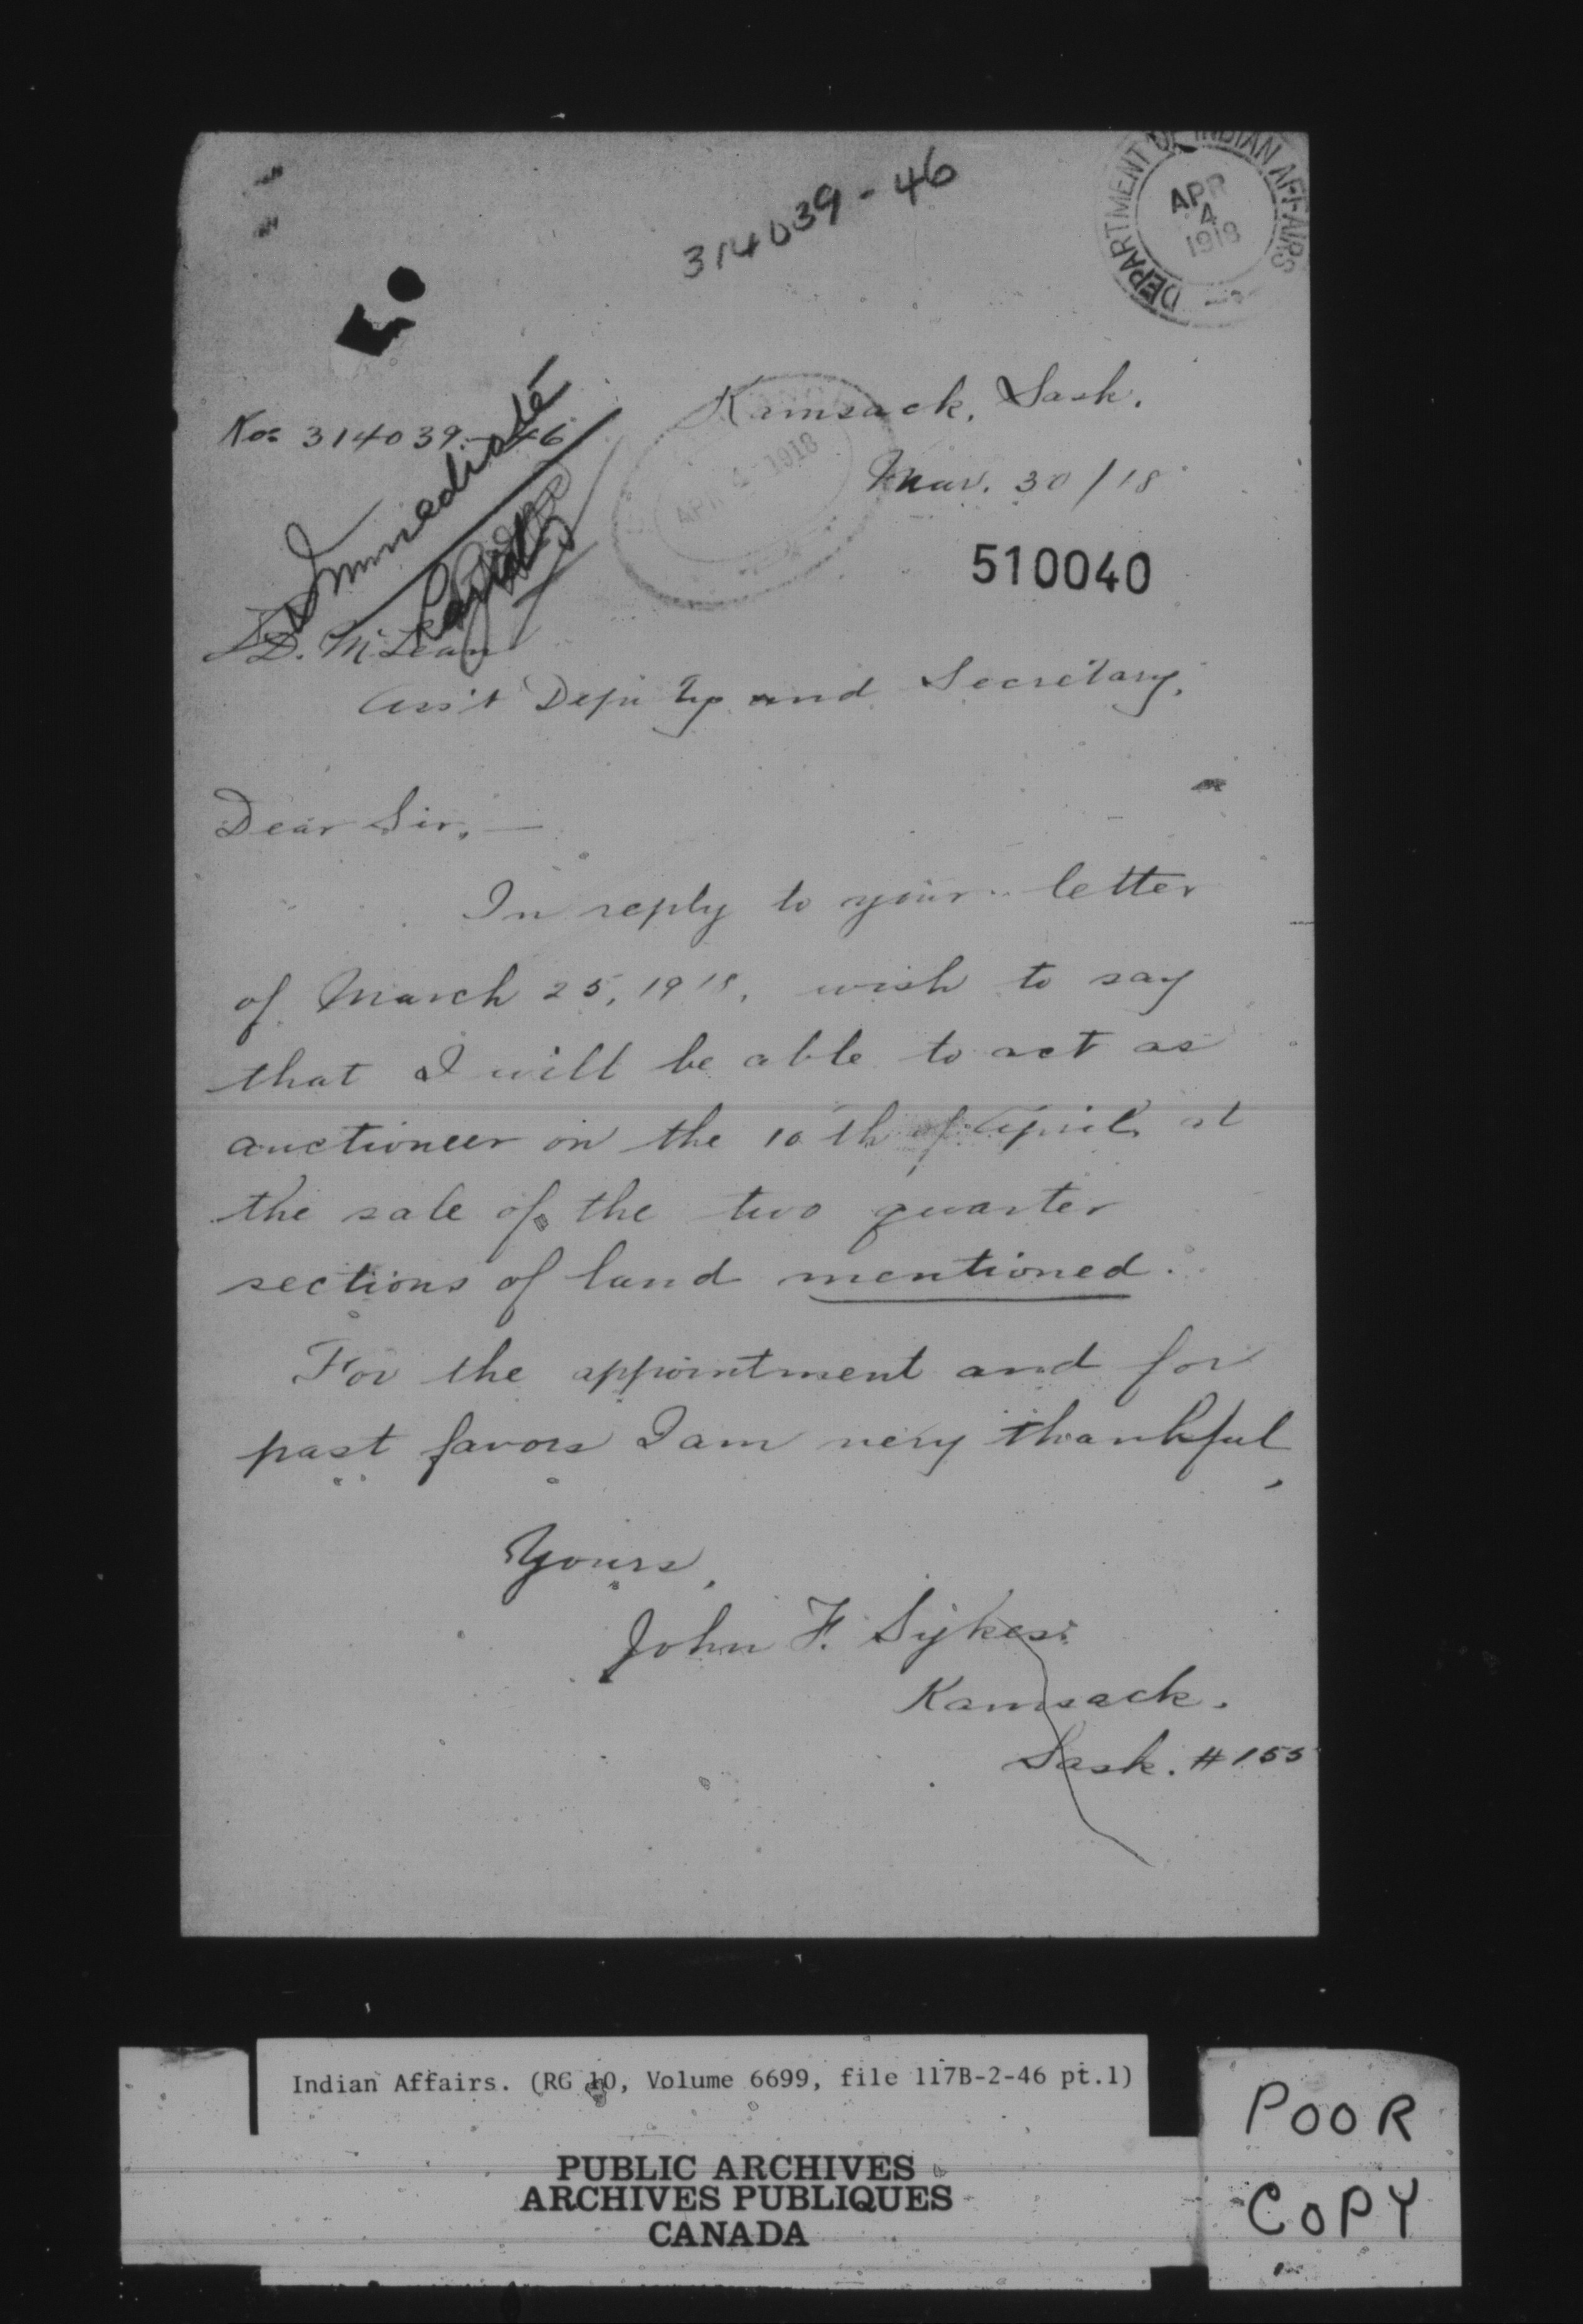 314039-46
DEPARTMENT OF INDIAN AFFAIRS
APR
4
1918
Kamsack, Sask.
No: 314039-46
Immediate
APR 4 1918
Mar. 30/18
510040
J.D. McLean
Ass't Deputy and Secretary,
Dear Sir, —
In reply to your letter
of March 25, 1918, wish to say
that I will be able to act as
auctioneer on the 10th of April at
the sale of the two quarter
sections of land mentioned.
For the appointment and for
past favors I am very thankful,
Yours,
John F. Sykes.
Kamsack.
Sask. #155
Indian Affairs. (RG 10, Volume 6699, file 117B-2-46 pt.1)
PUBLIC ARCHIVES
ARCHIVES PUBLIQUES
CANADA
POOR
COPY